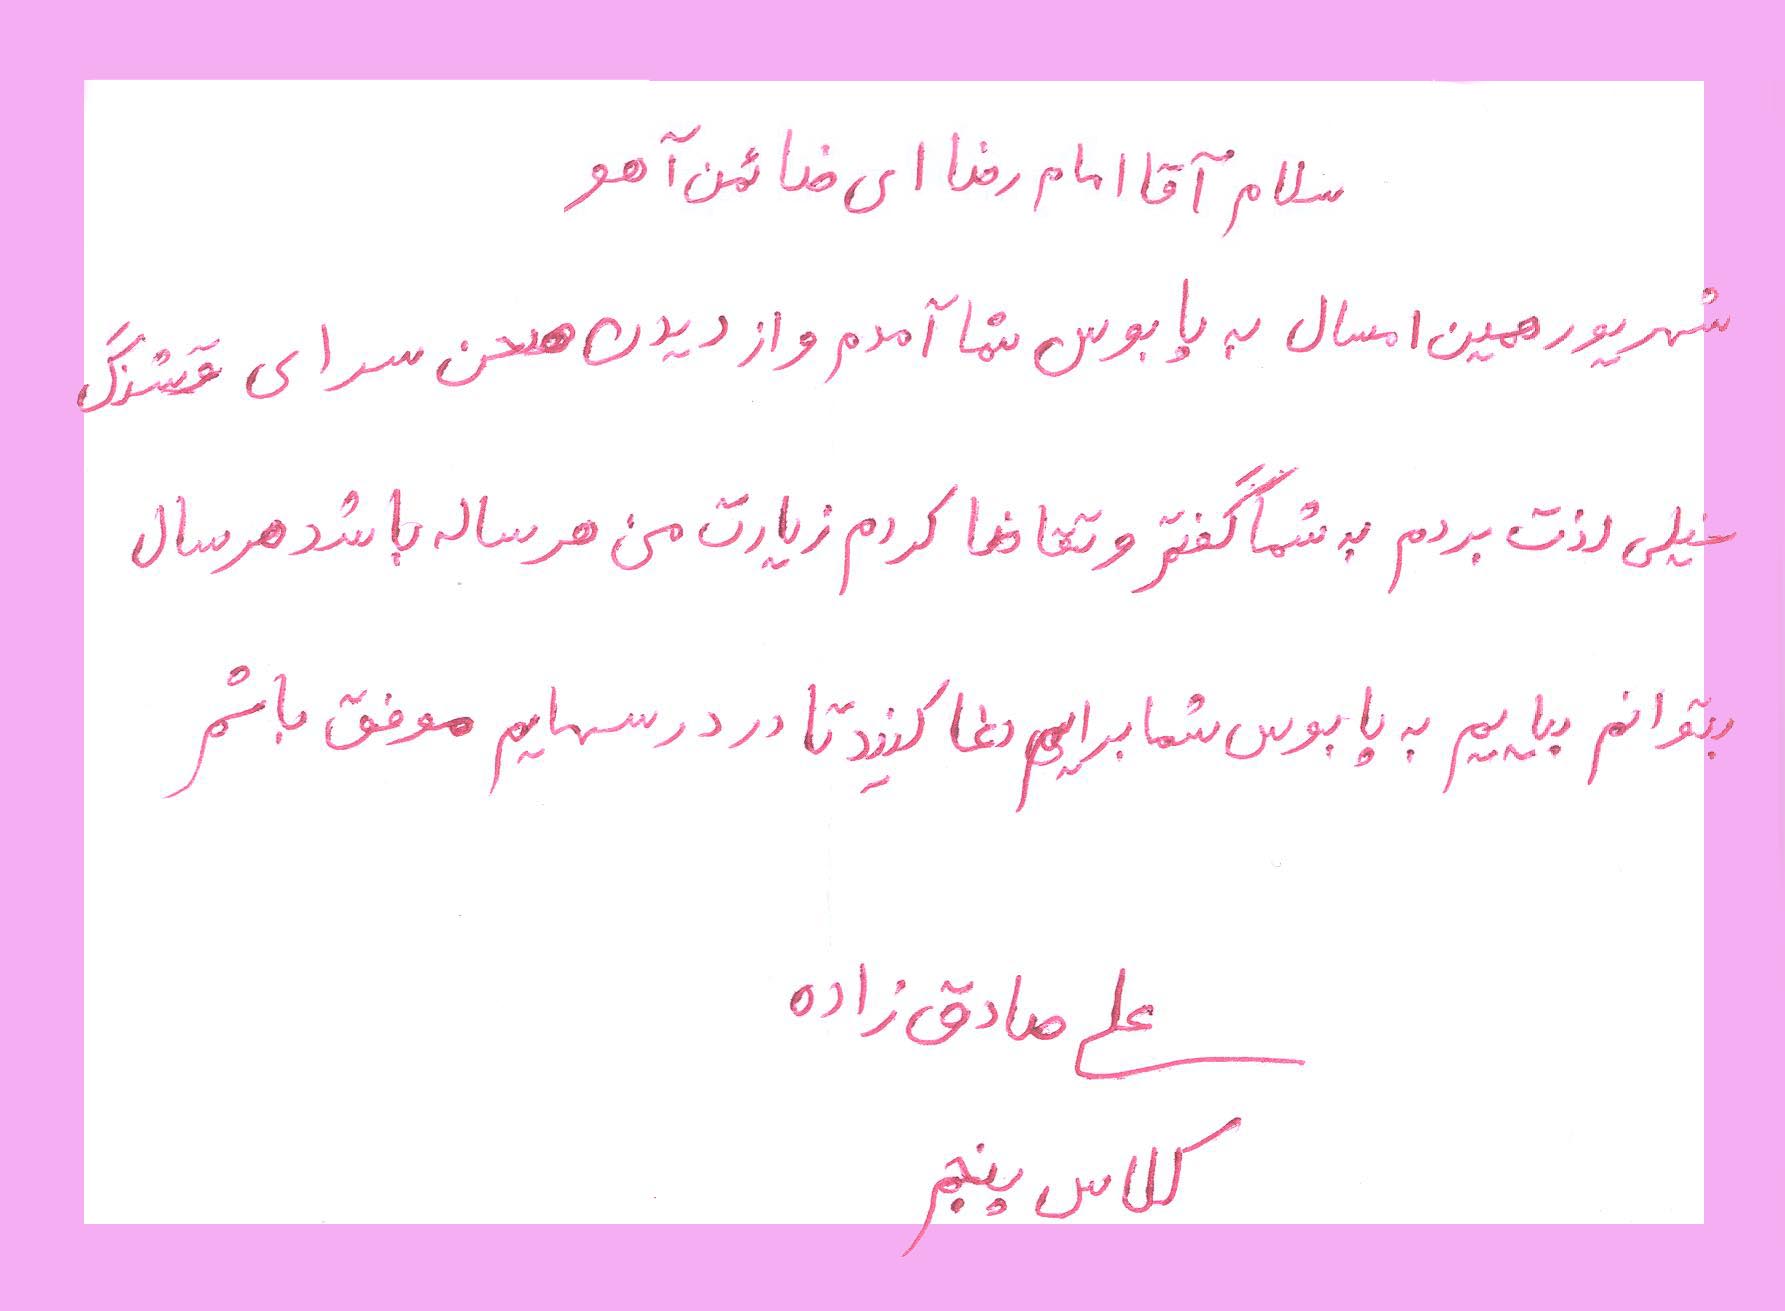 سلام آقا امام رضا ای ضائمن آهو
شهریور همین امسال به پا بوس شما آمدم و از دیدن صحن سرای قشنگ
خیلی لذت بردم به شما گفتم و تقاضا کردم زیارت من هر ساله باشد هر سال
بتوانم بیاییم به پا بوس شما برایم دعا کنید تا در درسهایم موفق باشم
علی صادق زاده
کلاس پنجم